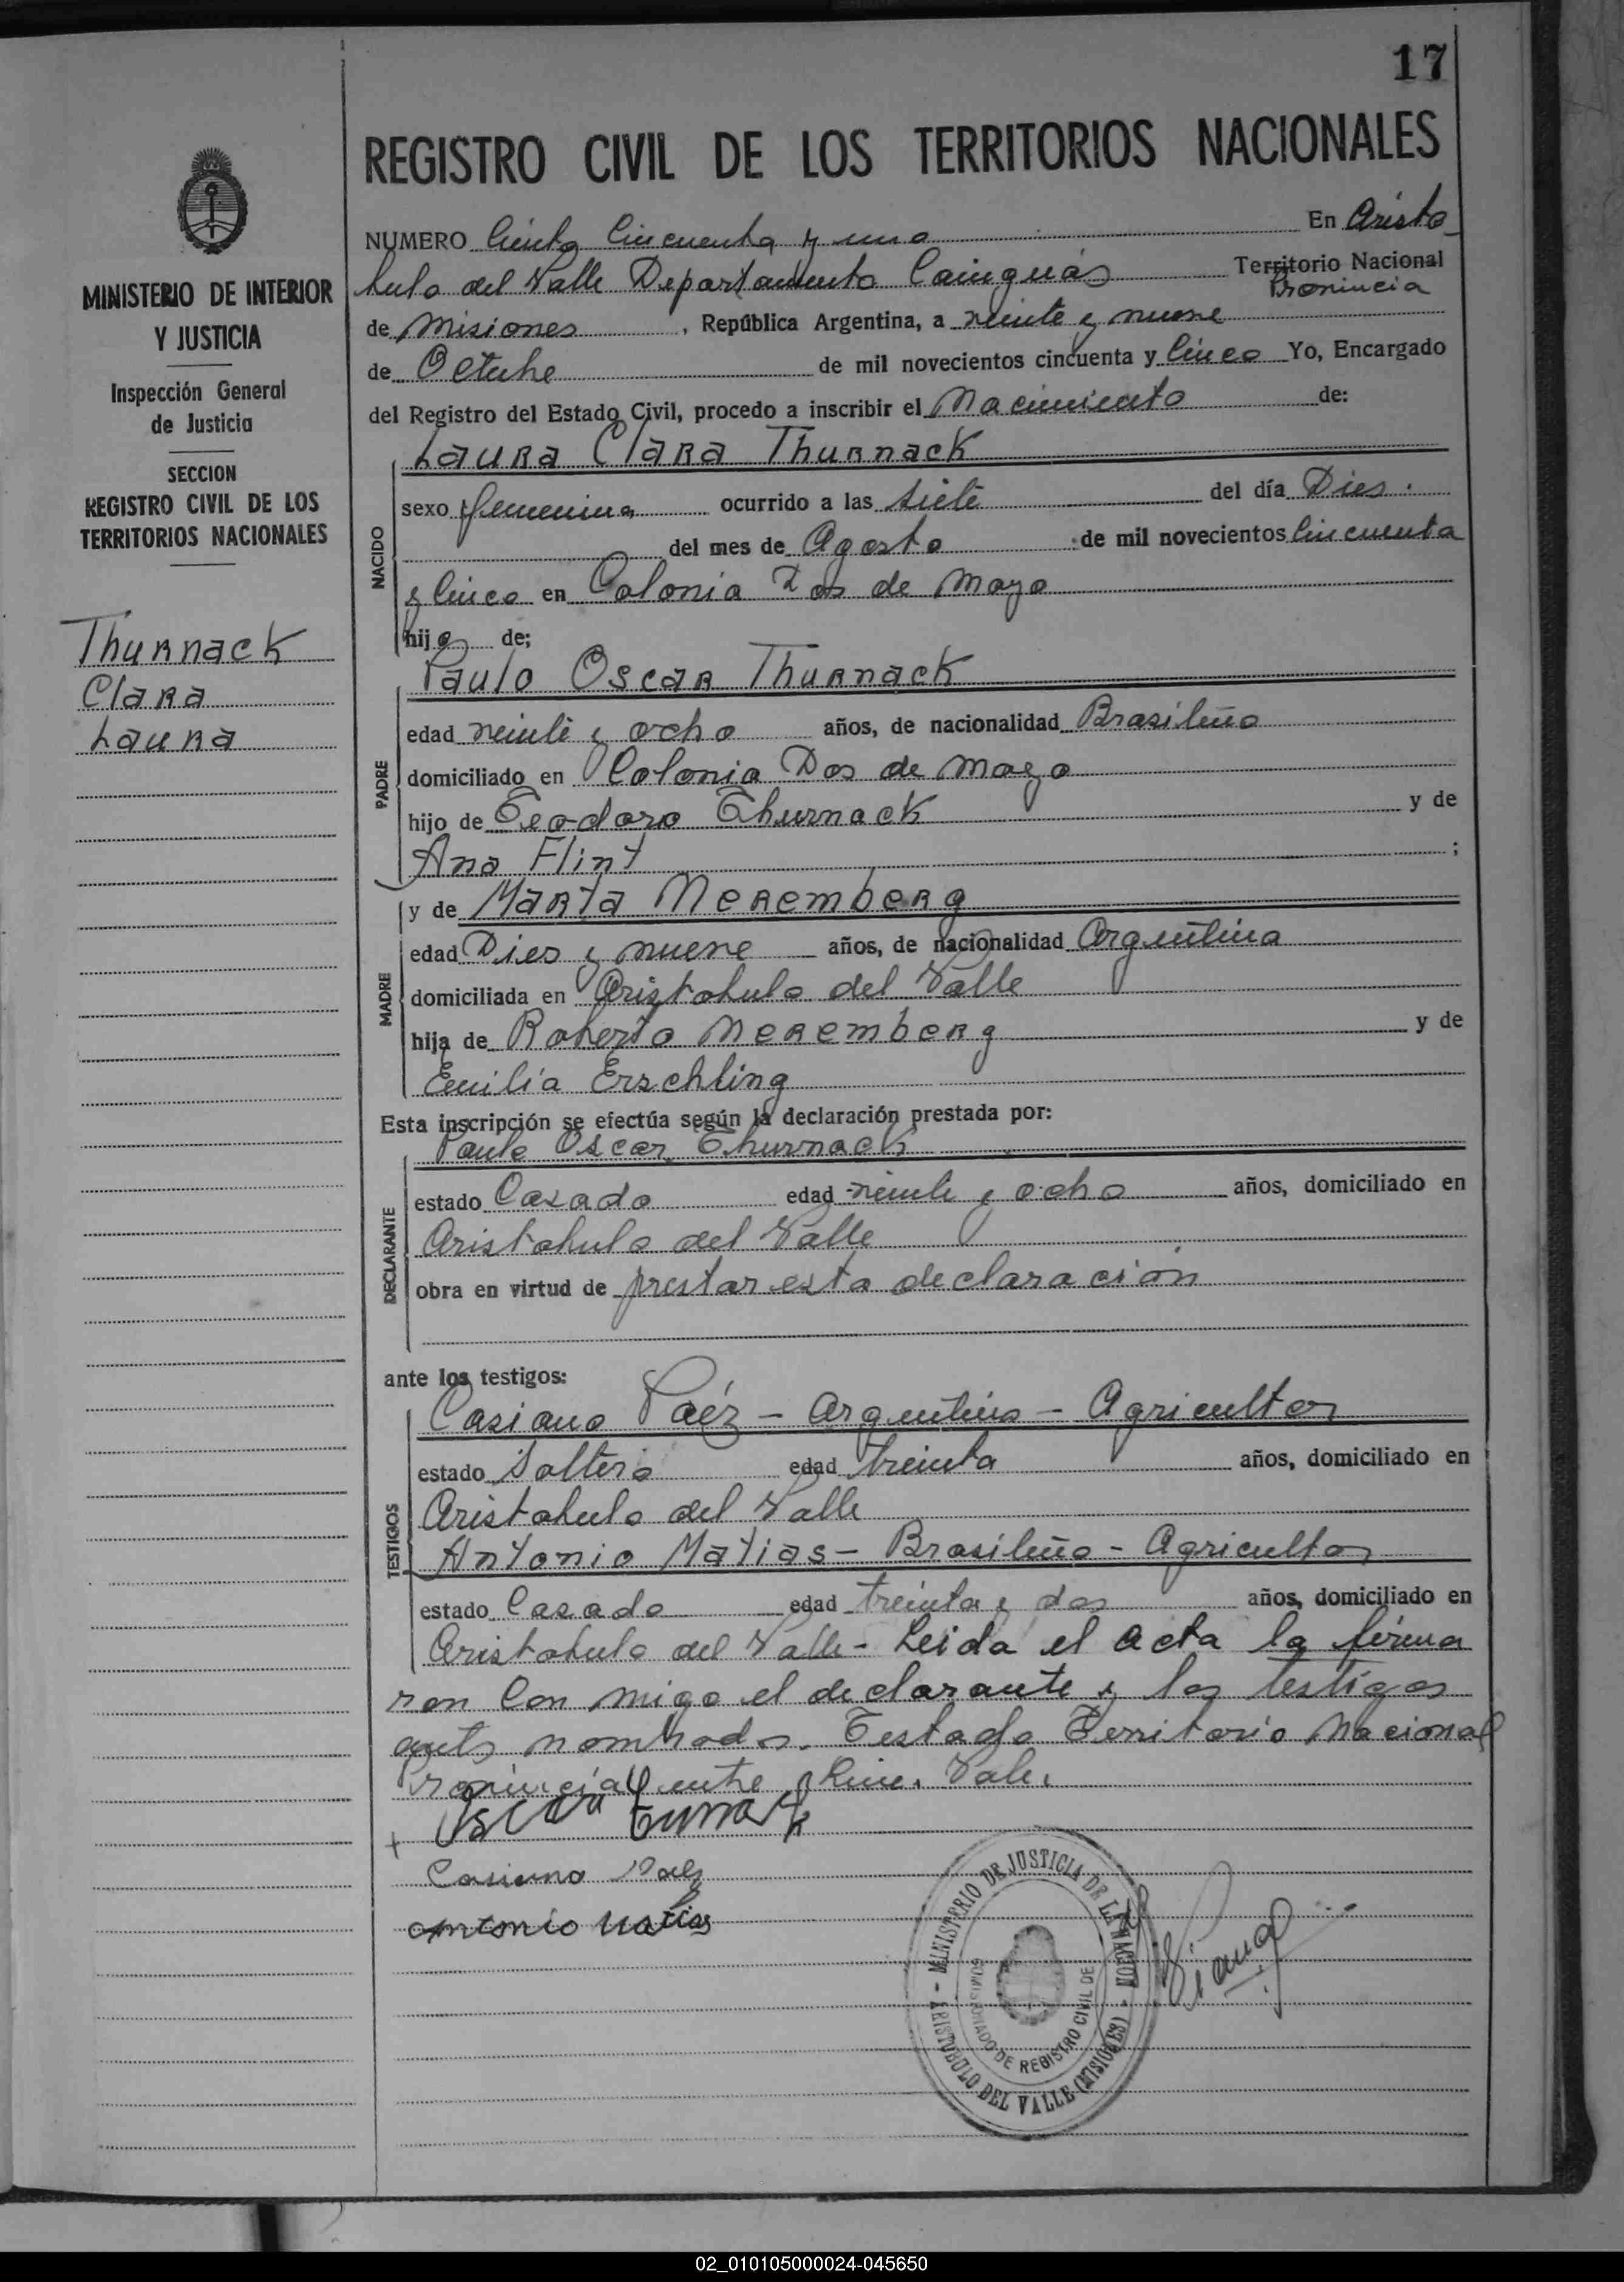 17
REGISTRO CIVIL DE LOS TERRITORIOS NACIONALES
MINISTERIO DE INTERIOR
Y JUSTICIA
Inspección General
de Justicia
SECCION
REGISTRO CIVIL DE LOS
TERRITORIOS NACIONALES
Thurnack
Clara
Laura
NUMERO Ciento Cincuenta y uno En Aristo
bulo del Valle Departamento Cainguás Territorio Nacional
Provincia
de Misiones, República Argentina, a veinte y nueve
de Octubre de mil novecientos cincuenta y Cinco Yo, Encargado
del Registro del Estado Civil, procedo a inscribir el Nacimiento de:
NACIDO
Laura Clara Thurnack
sexo femenina ocurrido a las siete del día Dies.
del mes de Agosto de mil novecientos Cincuenta
y Cinco en Colonia Dos de Mayo
hija de:
PADRE
Paulo Oscar Thurnack
edad veinte y ocho años, de nacionalidad Brasileño
domiciliado en Colonia Dos de Mayo
hijo de Teodoro Thurnack y de
Ana Flint ;
MADRE
y de Marta Meremberg
edad Dies y nueve años, de nacionalidad Argentina
domiciliada en Aristobulo del Valle
hija de Roberto Meremberg y de
Emilia Erschling
Esta inscripción se efectúa según la declaración prestada por:
DECLARANTE
Paulo Oscar Thurnack
estado Casado edad veinte y ocho años, domiciliado en
Aristobulo del Valle
obra en virtud de prestar esta declaración
ante los testigos:
TESTIGOS
Casiano Paéz - Argentino - Agricultor
estado Soltero edad treinta años, domiciliado en
Aristobulo del Valle
Antonio Matias - Brasileño - Agricultor
estado Casado edad treinta y dos años, domiciliado en
Aristobulo del Valle - Leida el acta la firma
ron Con migo el declarante y los testigos
ants nombrados. Testado Territorio Nacional
Provincial entre line. Vale.
Oscar
Casiano Paez
Antonio Matias
MINISTERIO DE JUSTICIA DE LA NACION - ARISTOBULO DEL VALLE (MISIONES) -
COMISARIADO DE REGISTRO CIVIL DE
02_010105000024-045650